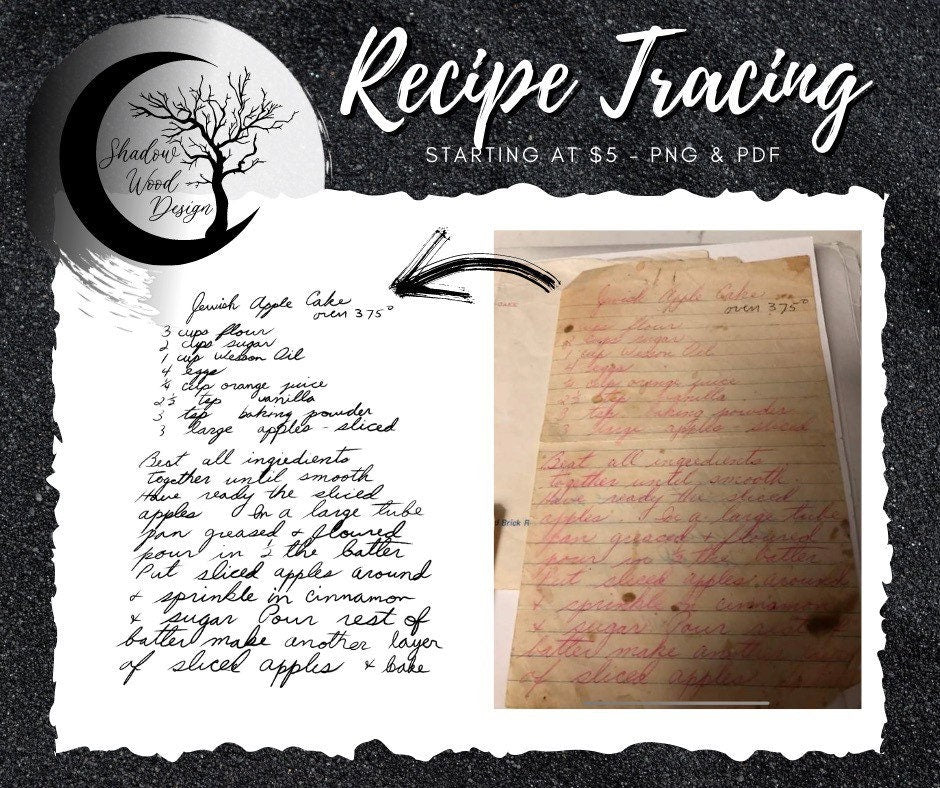 Recipe Tracing
STARTING AT $5 - PNG & PDF
Shadow
Wood
Design
Jewish Apple Cake
oven 375°
3 cups flour
2 cups sugar
1 cup Wesson Oil
4 eggs
¼ cup orange juice
2½ tsp vanilla
3 tsp baking powder
3 large apples - sliced
Beat all ingredients
together until smooth
Have ready the sliced
apples In a large tube
pan greased & floured
pour in ½ the batter
Put sliced apples around
& sprinkle in cinnamon
& sugar Pour rest of
batter make another layer
of sliced apples & bake
Jewish Apple Cake
oven 375°
cups flour
cups sugar
1 cup Wesson Oil
4 eggs
cup orange juice
tsp vanilla
3 tsp baking powder
3 large apples - sliced
Beat all ingredients
together until smooth.
Have ready the sliced
apples. In a large tube
pan greased & floured
pour in ½ the batter
Put sliced apples around
& sprinkle in cinnamon
& sugar Pour rest of
batter make another
of sliced apples
d Brick R